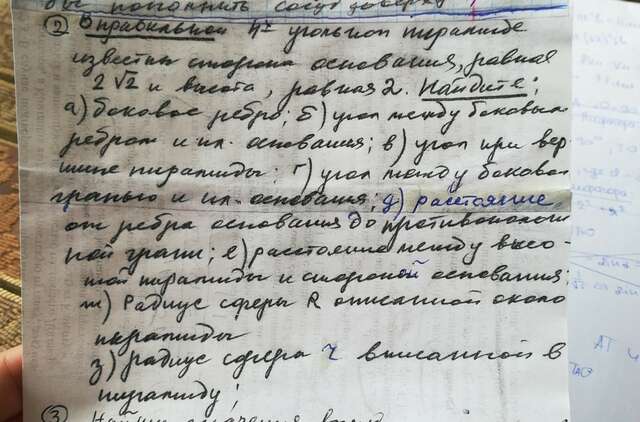 бы пополнить сосуд доверху
② В правильной 4-х угольной пирамиде
известны сторона основания, равная
2√2 и высота, равная 2. Найдите:
а) боковое ребро; б) угол между боковым
ребром и пл. основания; в) угол при вер-
шине пирамиды; г) угол между боковой
гранью и пл. основания; д) расстояние
от ребра основания до противополож-
ной грани; е) расстояние между высо-
той пирамиды и стороной основания;
ж) Радиус сферы R описанной около
пирамиды
з) радиус сферы r вписанной в
пирамиду;
③ Найти